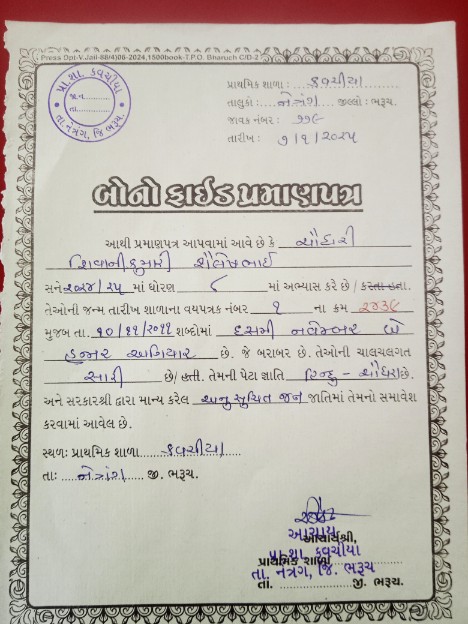 Press Dpt-V.Jail-88/4)08-2024,1500book-T.P.O. Bharuch C/D-2
પ્રા. શા. કવચીયા
જા.ન.
તા.
તા. નેત્રંગ, જિ ભરૂચ.
પ્રાથમિક શાળા : કવચીયા
તાલુકો : નેત્રંગ જીલ્લો : ભરૂચ.
જાવક નંબર : ૧૧૯
તારીખ : ૭/૧/૨૦૨૫
બોનો ફાઈડ પ્રમાણપત્ર
આથી પ્રમાણપત્ર આપવામાં આવે છે કે ચૌધરી
શિવાનીકુમારી શૈલેષભાઈ
સને ૨૦૨૪/૨૫ માં ધોરણ ૮ માં અભ્યાસ કરે છે / કરતા હતા.
તેઓની જન્મ તારીખ શાળાના વયપત્રક નંબર ૧ ના ક્રમ ૨૭૩૯
મુજબ તા. ૧૦/૧૧/૨૦૧૧ શબ્દોમાં દસમી નવેમ્બર બે
હજાર અગિયાર છે. જે બરાબર છે. તેઓની ચાલચલગત
સારી છે/ હતી. તેમની પેટા જ્ઞાતિ હિન્દુ - ચૌધરી છે.
અને સરકારશ્રી દ્વારા માન્ય કરેલ અનુસુચિત જન જાતિમાં તેમનો સમાવેશ
કરવામાં આવેલ છે.
સ્થળઃ પ્રાથમિક શાળા કવચીયા
તાઃ નેત્રંગ જી. ભરૂચ.
આચાર્ય
આચાર્યશ્રી,
પ્રા. શા. કવચીયા
પ્રાથમિક શાળા
તા. નેત્રંગ, જિ. ભરૂચ
તા. જી. ભરૂચ.